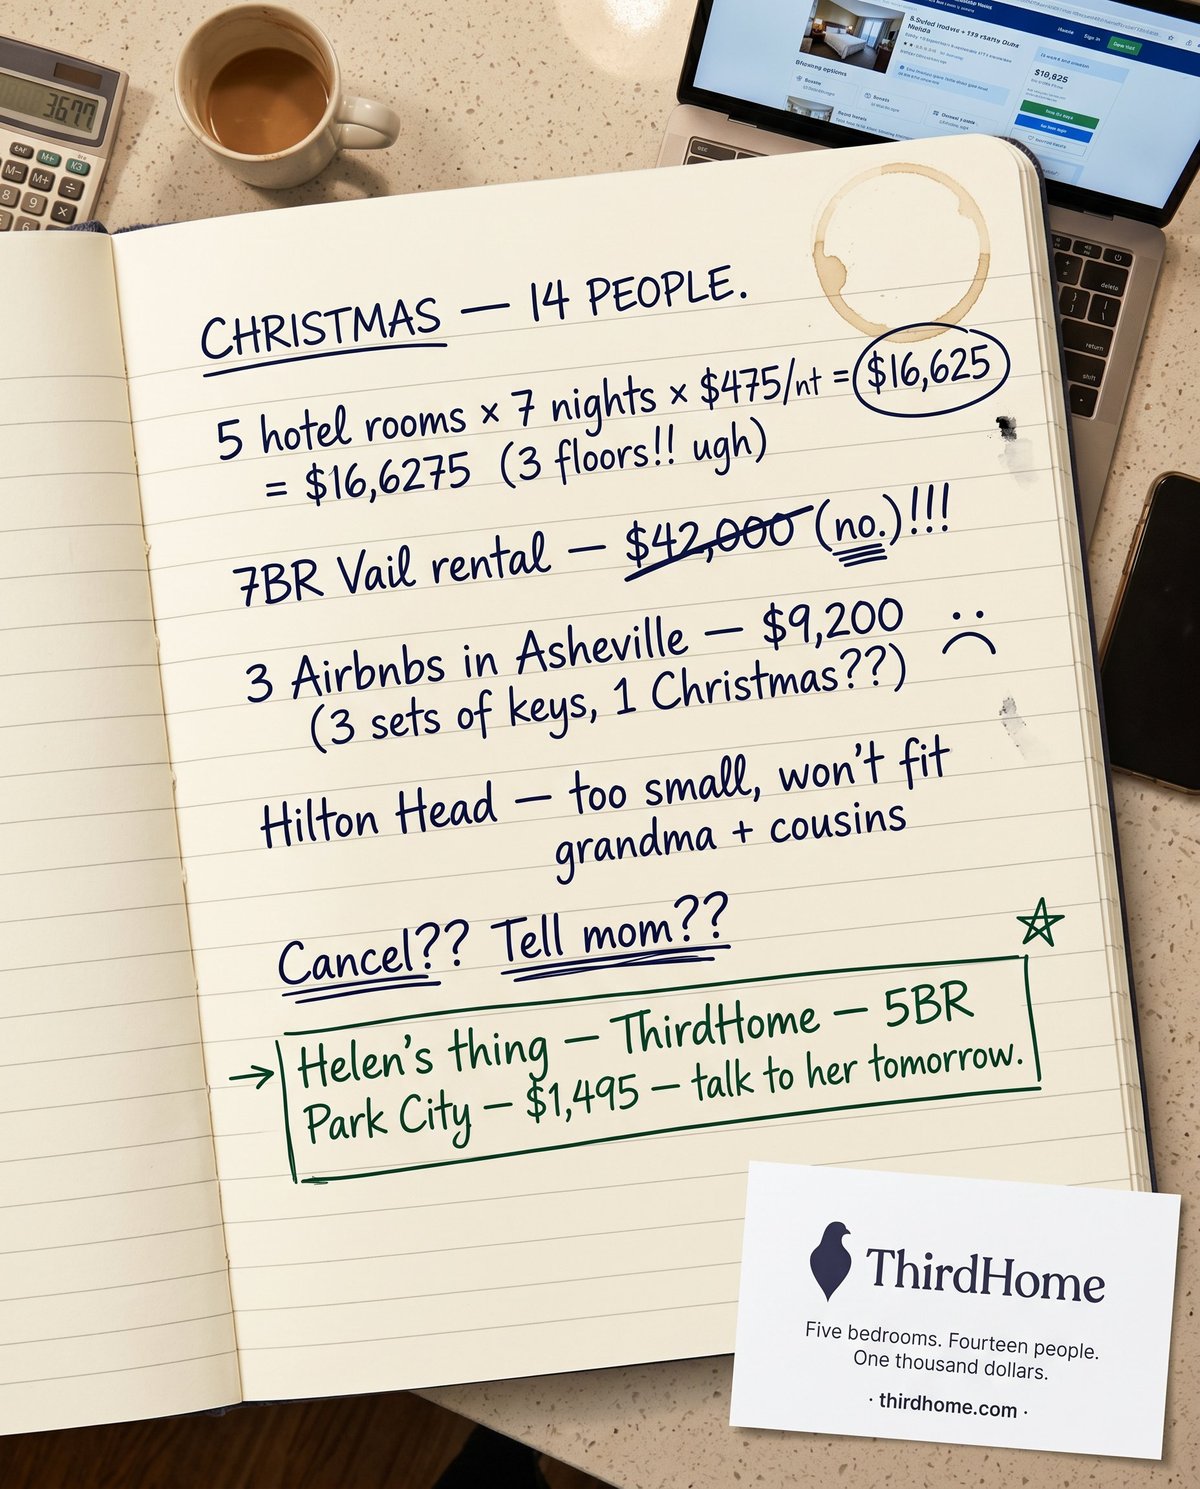 3677
$10,625
CHRISTMAS — 14 PEOPLE.
5 hotel rooms × 7 nights × $475/nt = $16,625
= $16,6275 (3 floors!! ugh)
7BR Vail rental — $42,000 (no.)!!!
3 Airbnbs in Asheville — $9,200
(3 sets of keys, 1 Christmas??)
Hilton Head — too small, won't fit
grandma + cousins
Cancel?? Tell mom??
→ Helen's thing — ThirdHome — 5BR
Park City — $1,495 — talk to her tomorrow.
ThirdHome
Five bedrooms. Fourteen people.
One thousand dollars.
· thirdhome.com ·